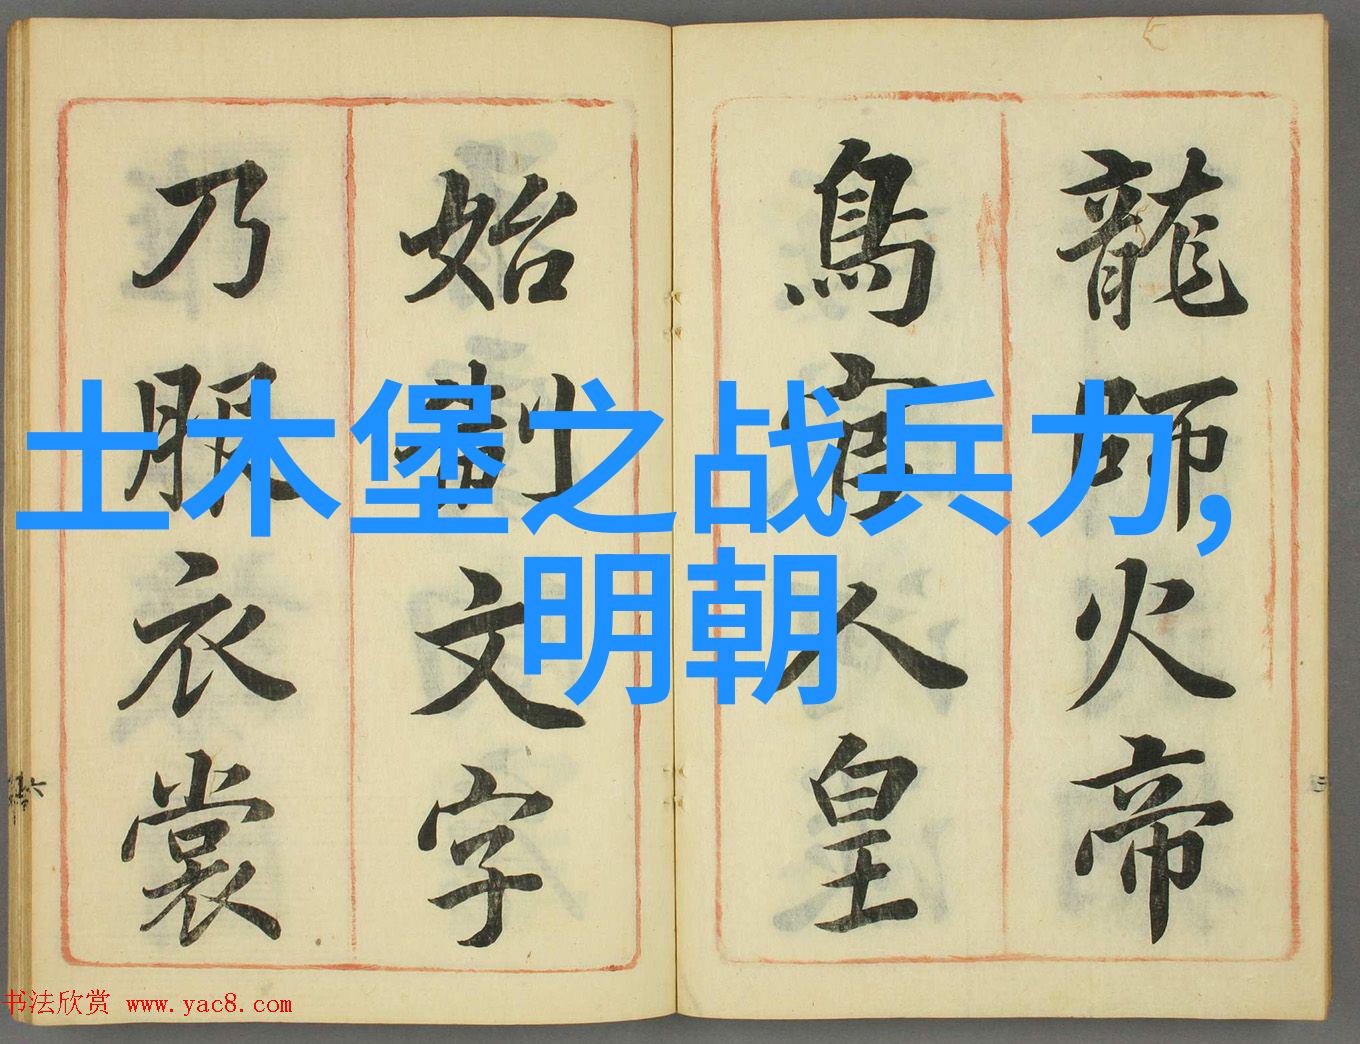 龍師火帝
鳥官人皇
始制文字
乃服衣裳
土木堡之战兵力,
明朝
书法欣赏 www.yac8.com